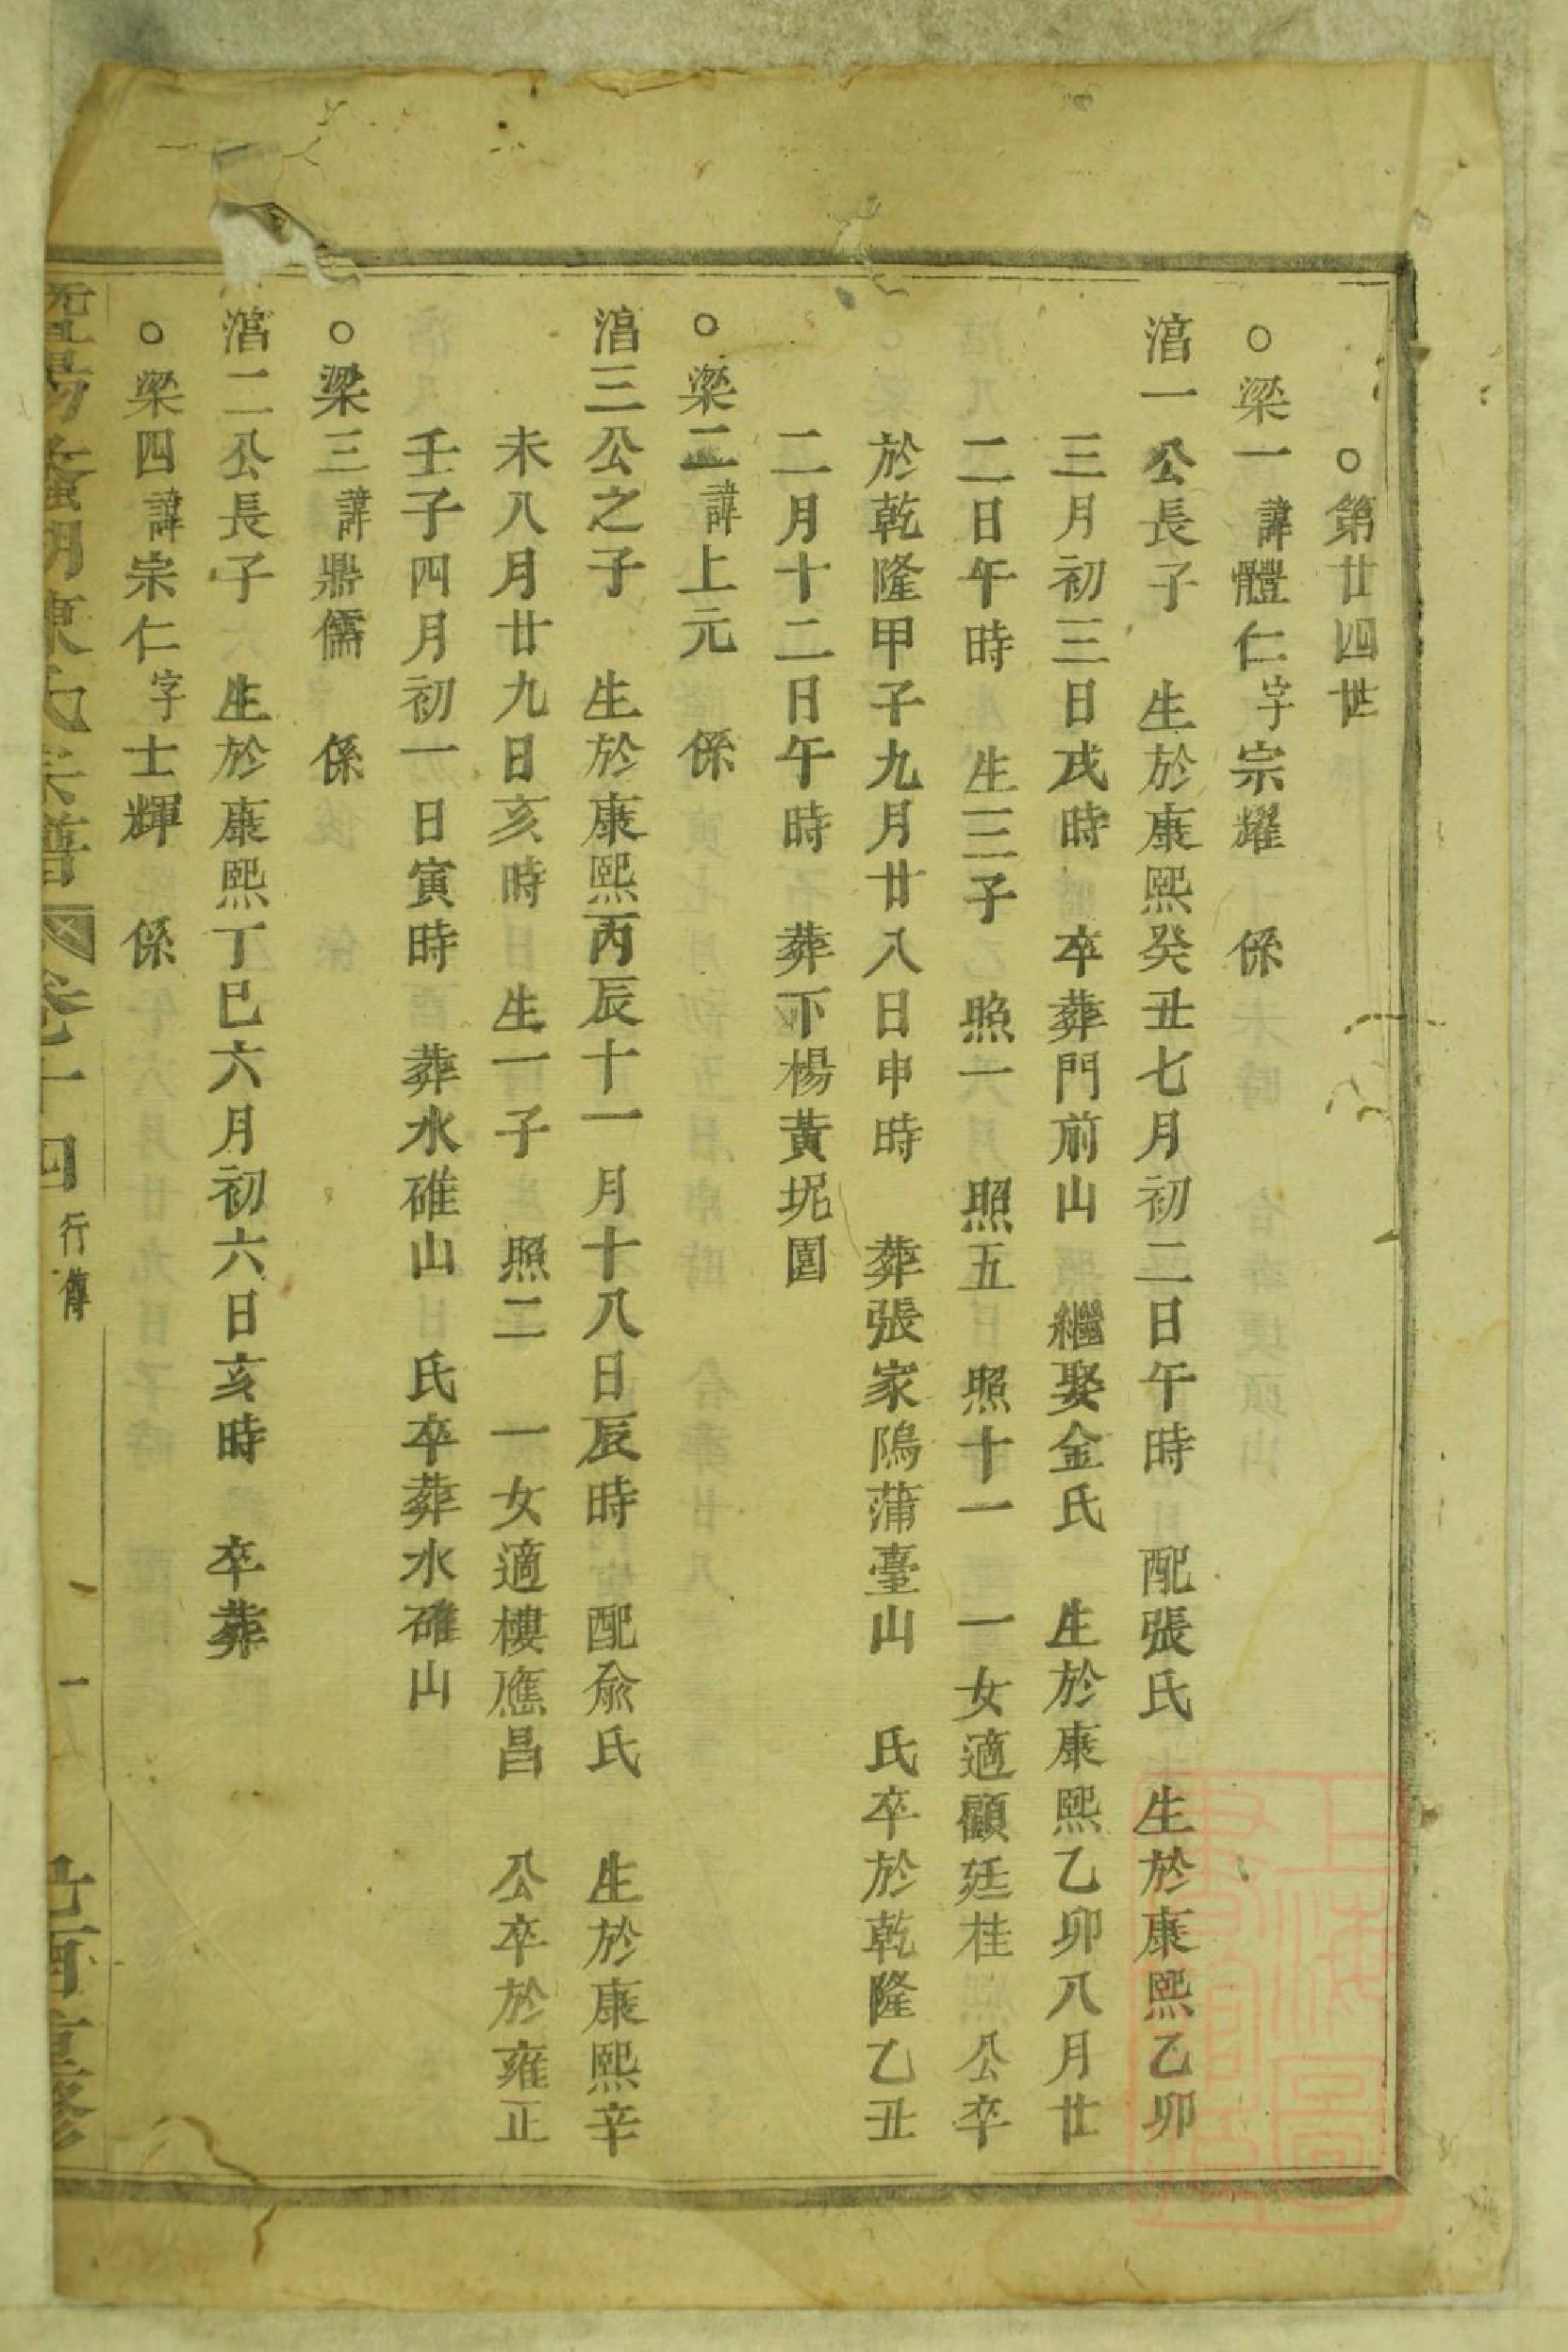 ○第廿四世
○梁一諱體仁字宗耀　係
湻一公長子　生於康熙癸丑七月初二日午時　配張氏　生於康熙乙卯
三月初三日戌時　卒葬門前山　繼娶金氏　生於康熙乙卯八月廿
二日午時　生三子　照一　照五　照十一　一女適顧廷桂　公卒
於乾隆甲子九月廿八日申時　葬張家隝蒲臺山　氏卒於乾隆乙丑
二月十二日午時　葬下楊黃坭園
○梁二諱上元　係
湻三公之子　生於康熙丙辰十一月十八日辰時　配俞氏　生於康熙辛
未八月廿九日亥時　生一子　照二　一女適樓應昌　公卒於雍正
壬子四月初一日寅時　葬水碓山　氏卒葬水碓山
○梁三諱鼎儒　係
湻二公長子　生於康熙丁巳六月初六日亥時　卒葬
○梁四諱宗仁字士輝　係
暨陽　湖陳氏宗譜　卷十四　行傳　一
上海圖書館藏